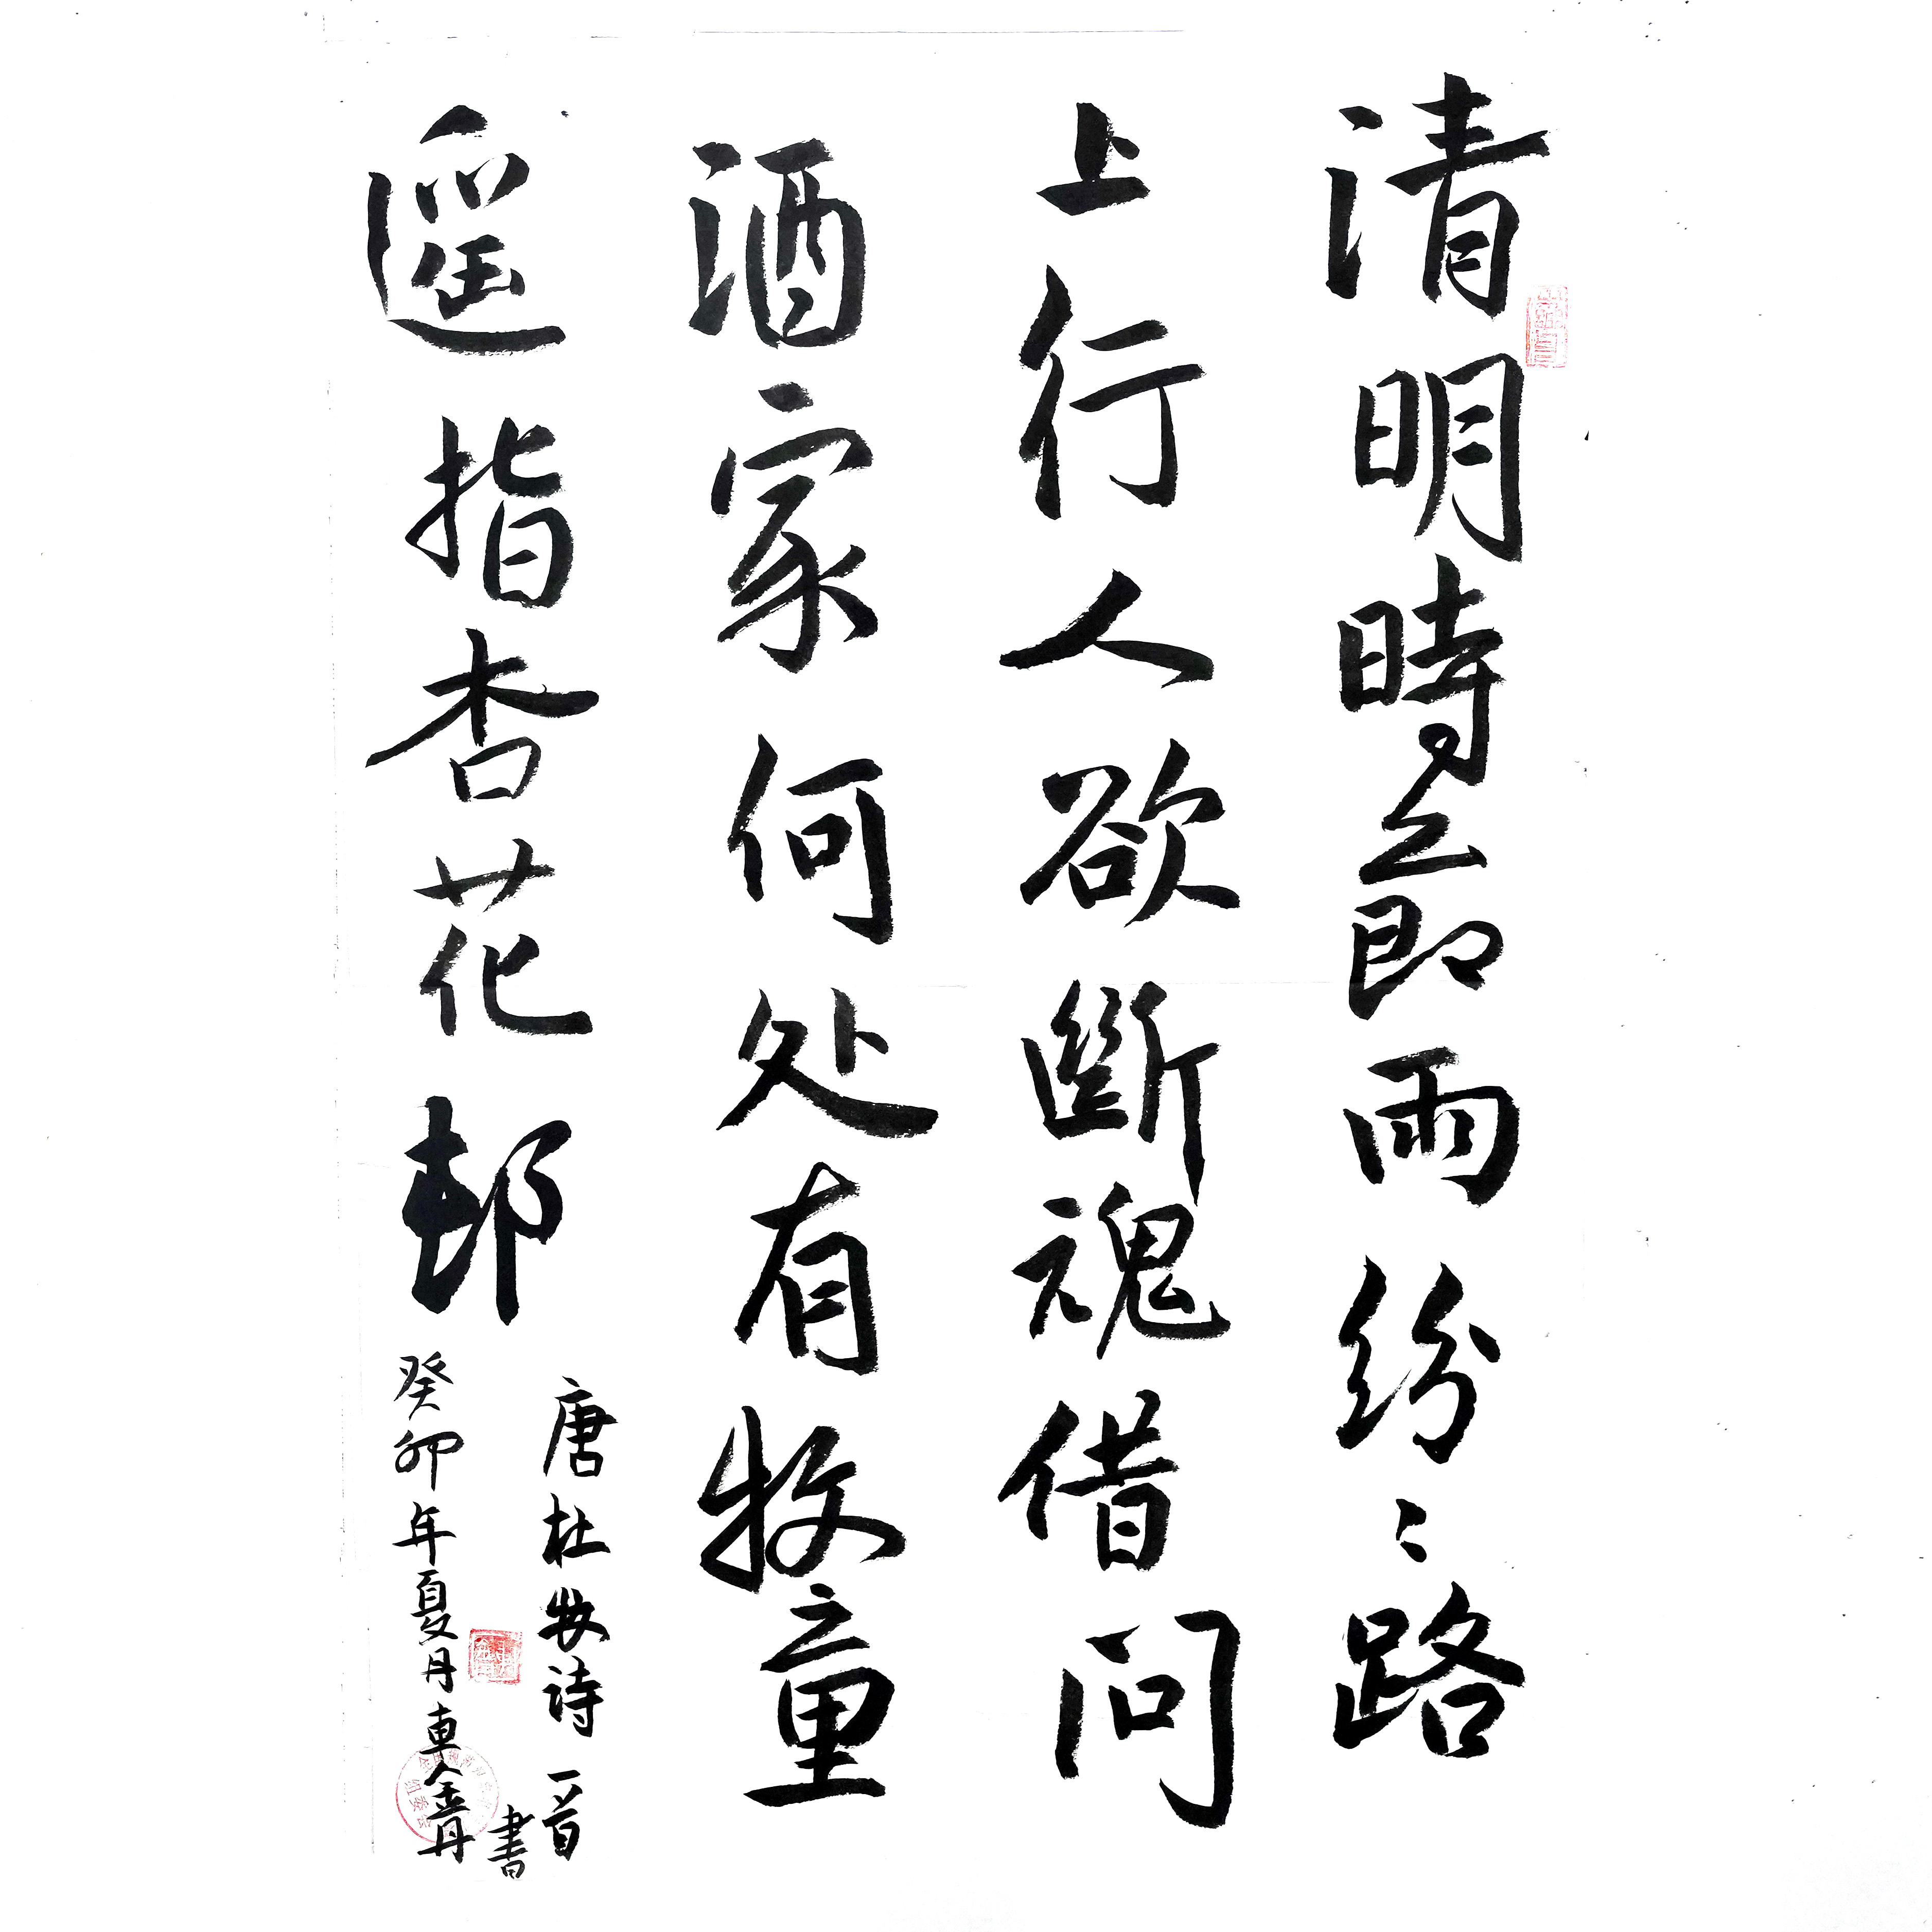 清明時節雨紛〻路
上行人欲斷魂借问
酒家何处有牧童
遥指杏花邨
唐杜牧詩一首
癸卯年夏月車金丹
書